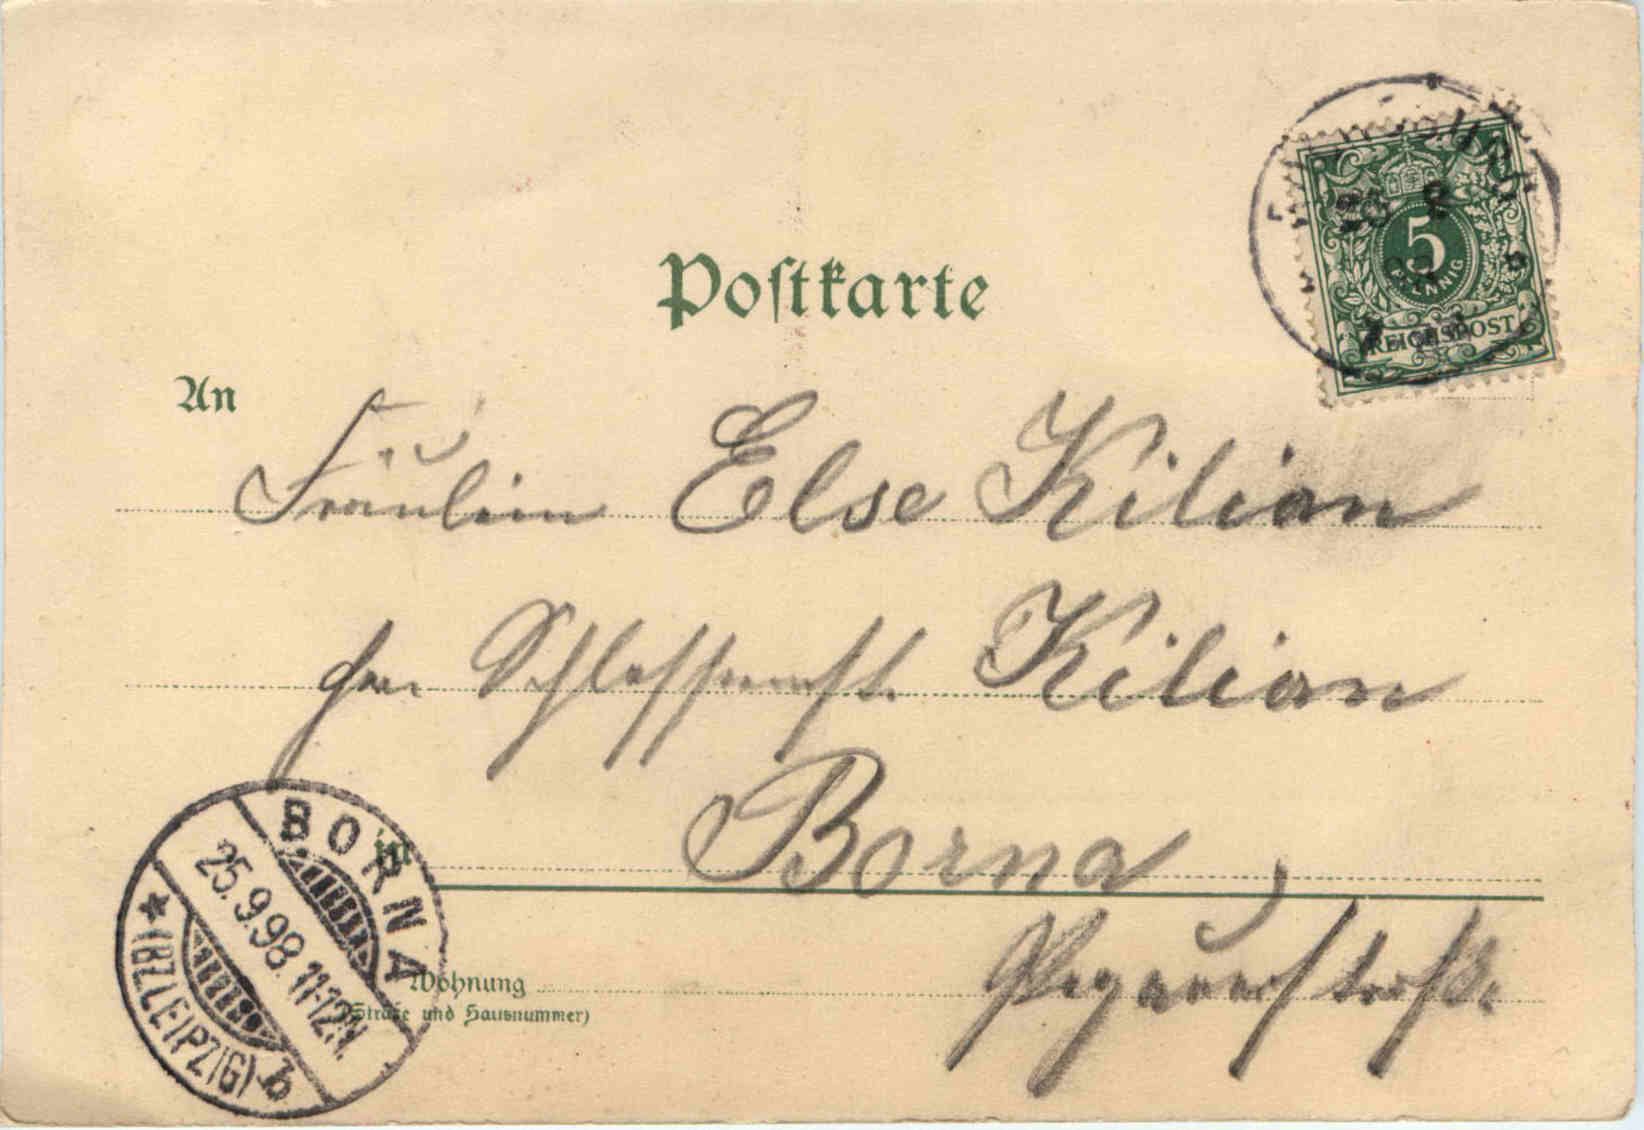 Postkarte
5
PFENNIG
REICHSPOST
25 9
An
Fräulein Else Kilian
Kilian
in
Borna
Pegauerstraße.
Wohnung
(Straße und Hausnummer)
BORNA
25.9.98.11-12N.
* (BZ.LEIPZIG) b